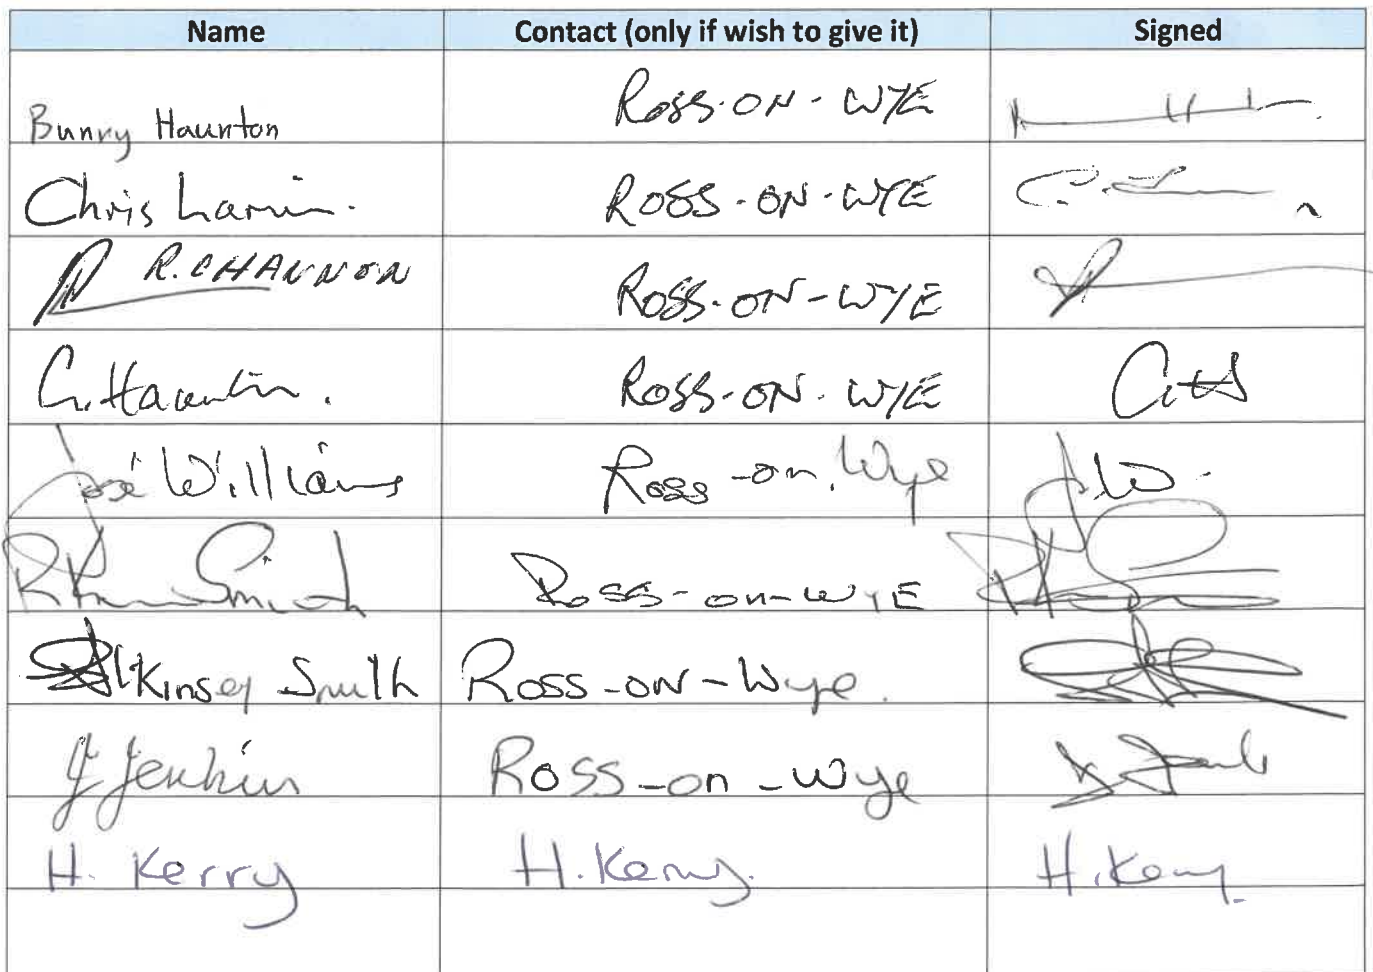 Name Contact (only if wish to give it) Signed
Bunny Haunton Ross-on-WYE
Chris Larvin. ROSS-ON-WYE
R.CHANNON ROSS-ON-WYE
C. Haunton. ROSS-ON-WYE
José Williams Ross-on-Wye JW.
Smith Ross-on-WYE
Kinsey Smith ROSS-ON-Wye.
J Jenkins Ross-on-Wye
H. Kerry H. Kerry. H. Kerry.